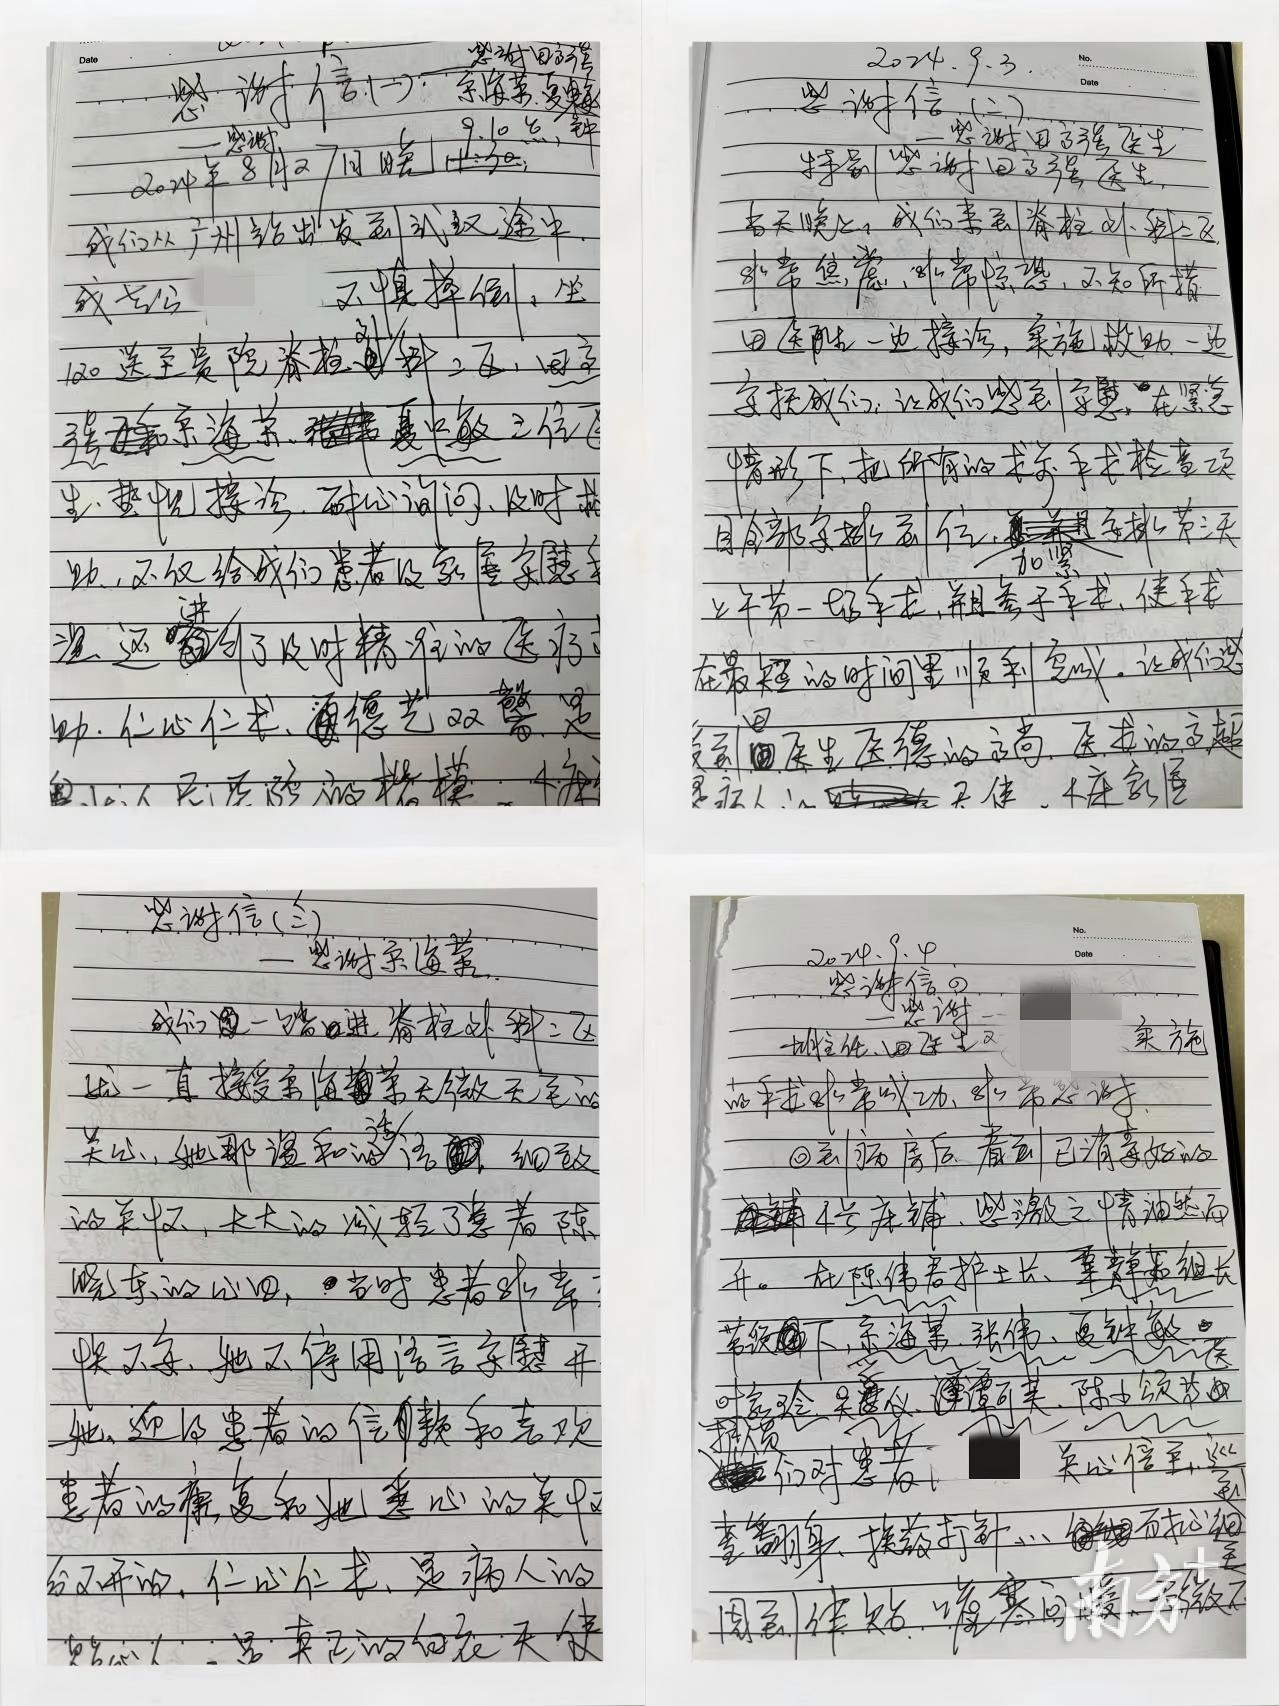 Date
感谢田高强
感谢信(一)
京海荣、夏钟敏
9.10点钟
——感谢
2024年8月27日晚
我们从广州站出发到武汉途中
我老公 不慎摔倒,坐
120送至贵院脊柱外科二区,田高
强 京海荣、夏中敏三位医
生,热忱接诊、耐心询问、及时救
助,不仅给我们患者及家属安慰
温,还进行了及时精准的医疗
助.仁心仁术、德艺双馨,是
人民医院的楷模.
2024.9.3.
No.
Date
感谢信(二)
——感谢田高强医生
特别感谢田高强医生,
当天晚上,我们来到脊柱外科二区,
非常焦虑,非常惊恐,不知所措
田医生一边接诊,实施救助一边
安抚我们,让我们感到安慰,在紧急
情形下,把所有的术前手术检查项
目全部安排到位,加紧安排第三天
上午第一场手术,并且参于手术,使手术
在最短的时间里顺利完成。让我们感
受到田医生医德的高尚,医术的高超
是病人的 天使.4床家属
感谢信(三)
——感谢京海荣.
我们一踏进脊柱外科二区
就一直接受京海荣无微无毛的
关心,她那温和的话语,细致
的关怀,大大的减轻了患者陈
晓东的心田,当时患者非常
惧不安,她不停用语言安慰开
她,迎得患者的信赖和喜欢
患者的康复和她悉心的关怀
分不开的,仁心仁术、是病人的
贴心人,是真正的白衣天使
No.
Date
2024.9.4
感谢信四
——感谢
主任、田医生 实施
的手术非常成功、非常感谢.
回到病房后,看到已消毒好的
4号床铺,感激之情油然而
升。在陈伟君护士长、覃静茹组长
带领下,京海荣、张伟、夏钟敏
叶家玲、吴 仪、谭可美、陈小颂等
医
护人员
们对患者 关心倍至,巡
查翻身、换药打针… 而把心细
周到体贴,嘘寒问暖,无微不
南方+